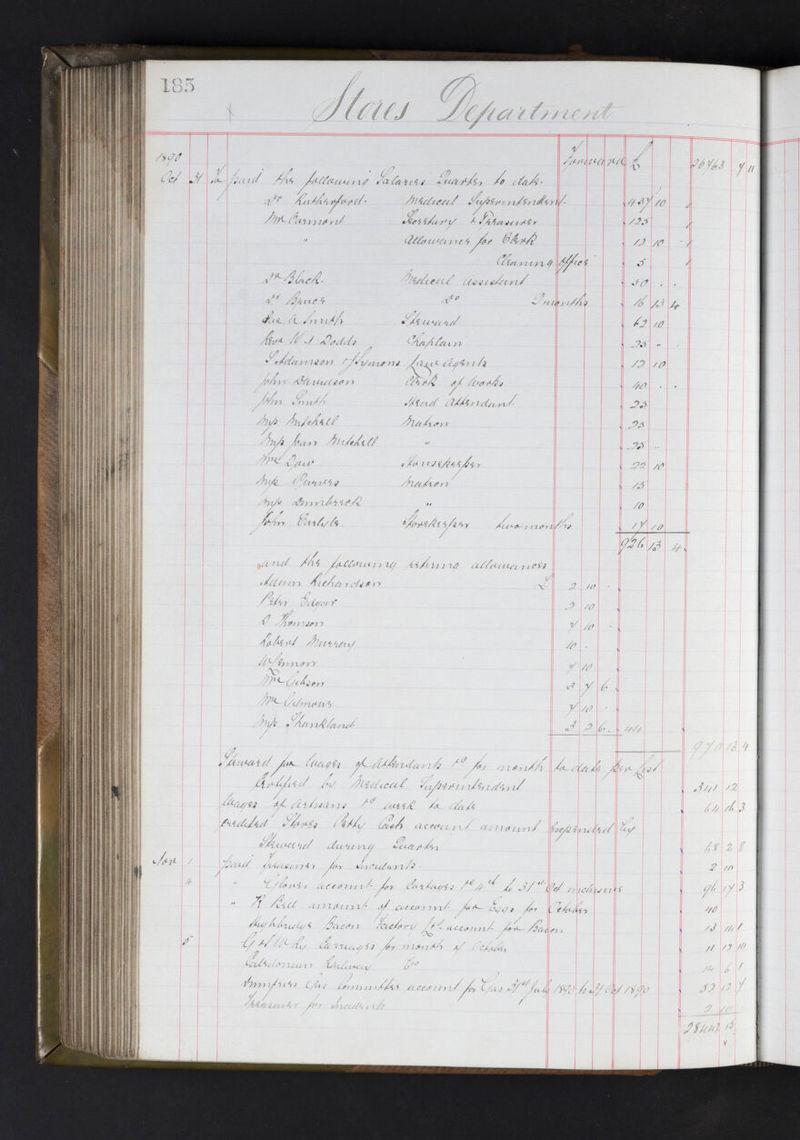 185
Stores Department
1890 Forward £ 26763 7 11
Oct 31 To paid the following Salaries Quarter to date.
Dr Rutherford. Medical Superintendent. 437 10
Mr Carmont Secretary & Treasurer 125
" Allowance for Clerk 12 10
Cleaning Office 5
Dr Black. Medical assistant 50 . .
Dr Bruce Do 2 months 16 13 4
Smith Steward 62 10
Revd W Dodds Chaplain 25 -
Adamson & Symons Law Agents 12 10
John Davidson Clerk of Works 40 . .
John Smith Head Attendant 25
Miss Mitchell Matron 25
Miss Jean Mitchell " 25 -
Mrs Daw Housekeeper 22 10
Miss Purves Matron 15
Miss Dunbreck " 10
John Carlyle Storekeeper two months 17 10
926 13 4
and the following retiring allowances
Adam Richardson £ 2 10 -
Peter Edgar 2 10
D Thomson 7 10
Robert Murray 10 -
W Lennon 7 10
Wm Gibson 3 7 6
Wm Gilmour 7 10 -
Miss Shankland 3 2 6 44
970 13 4
Steward for Wages of Attendants &c for month to date per List
Certified by Medical Superintendent 341 12
Wages of Artisans &c week to date 64 16 3
credited Stores Petty Cash account amount expended by
Steward during Quarter 68 2 8
Nov 1 paid Treasurer for Incidents 2 10
4 " Glover account for Cartages &c 4th to 31st Oct inclusive 96 17 3
" R Bell amount of account for Eggs for October 40
Highbridge Bacon Factory Co account for Bacon
5 G & S W Ry Carriages for month of October 11 12 10
Caledonian Railway Do 14 6 1
Dumfries Gas Committee account for Gas 31st July 1890 to 31 Oct 1890 52 12 7
Treasurer for Incidents 2 10